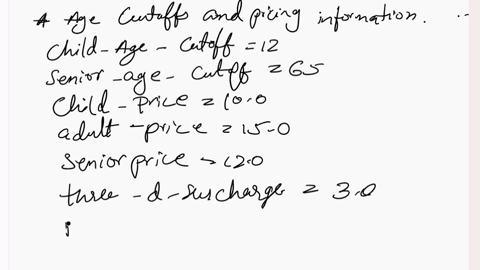 # Age Cutoffs and pricing information.
Child-Age-Cutoff = 12
Senior-age-Cutoff = 65
Child-Price = 10.0
adult-price = 15.0
Senior price = 12.0
three-d-surcharge = 3.0